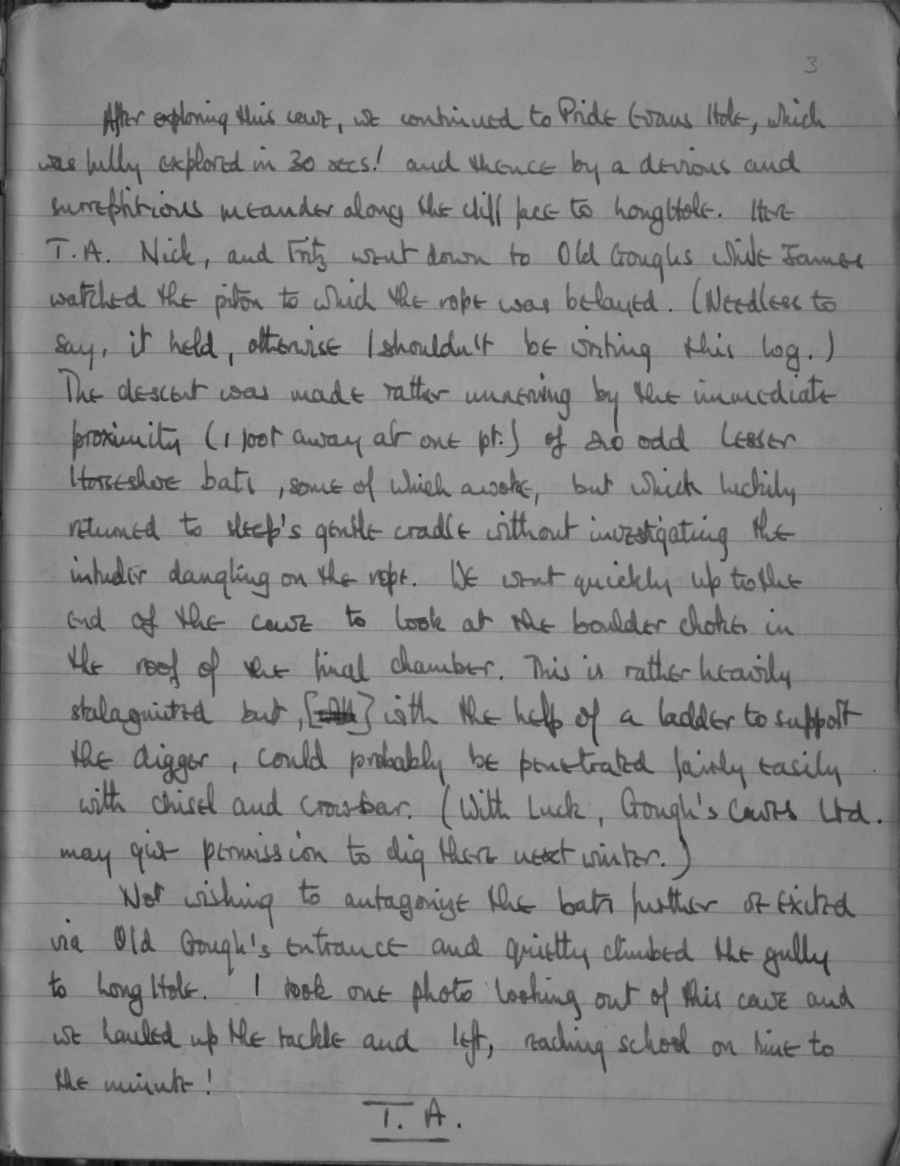 3
After exploring this cave, we continued to Pride Evans Hole, which
was fully explored in 30 secs! and thence by a devious and
surreptitious meander along the cliff face to Long Hole. Here
T.A. Nick, and Fritz went down to Old Goughs while James
watched the piton to which the rope was belayed. (Needless to
say, it held, otherwise I shouldn't be writing this log.)
The descent was made rather unnerving by the immediate
proximity (1 foot away at one pt.) of 20 odd Lesser
Horseshoe bats, some of which awoke, but which luckily
returned to sleep's gentle cradle without investigating the
intruder dangling on the rope. We went quickly up to the
end of the cave to look at the boulder chokes in
the roof of the final chamber. This is rather heavily
stalagmited but, [] with the help of a ladder to support
the digger, could probably be penetrated fairly easily
with chisel and crowbar. (With luck, Gough's Caves Ltd.
may give permission to dig there next winter.)
Not wishing to antagonize the bats further we exited
via Old Gough's entrance and quietly climbed the gully
to Long Hole. I took one photo looking out of this cave and
we hauled up the tackle and left, reaching school on time to
the minute!
T. A.